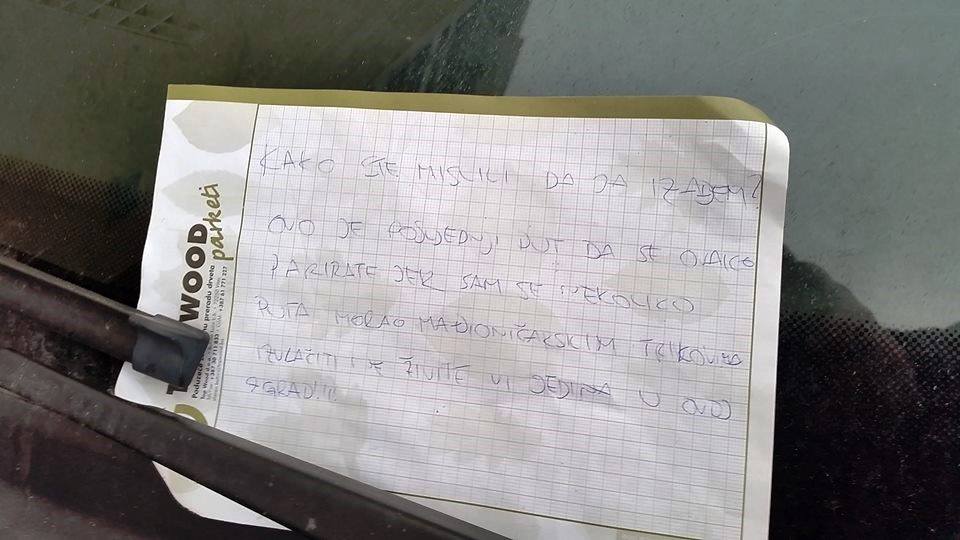 KAKO STE MISLILI DA JA IZAĐEM?
OVO JE POSLJEDNJI PUT DA SE OVAKO
PARIRATE JER SAM SE NEKOLIKO
PUTA MORAO MAĐIONIČARSKIM TRIKOVIMA
IZVLAČITI I NE ŽIVITE VI JEDINA U OVOJ
ZGRADI!!!
WOOD
parketi
preradu drveta